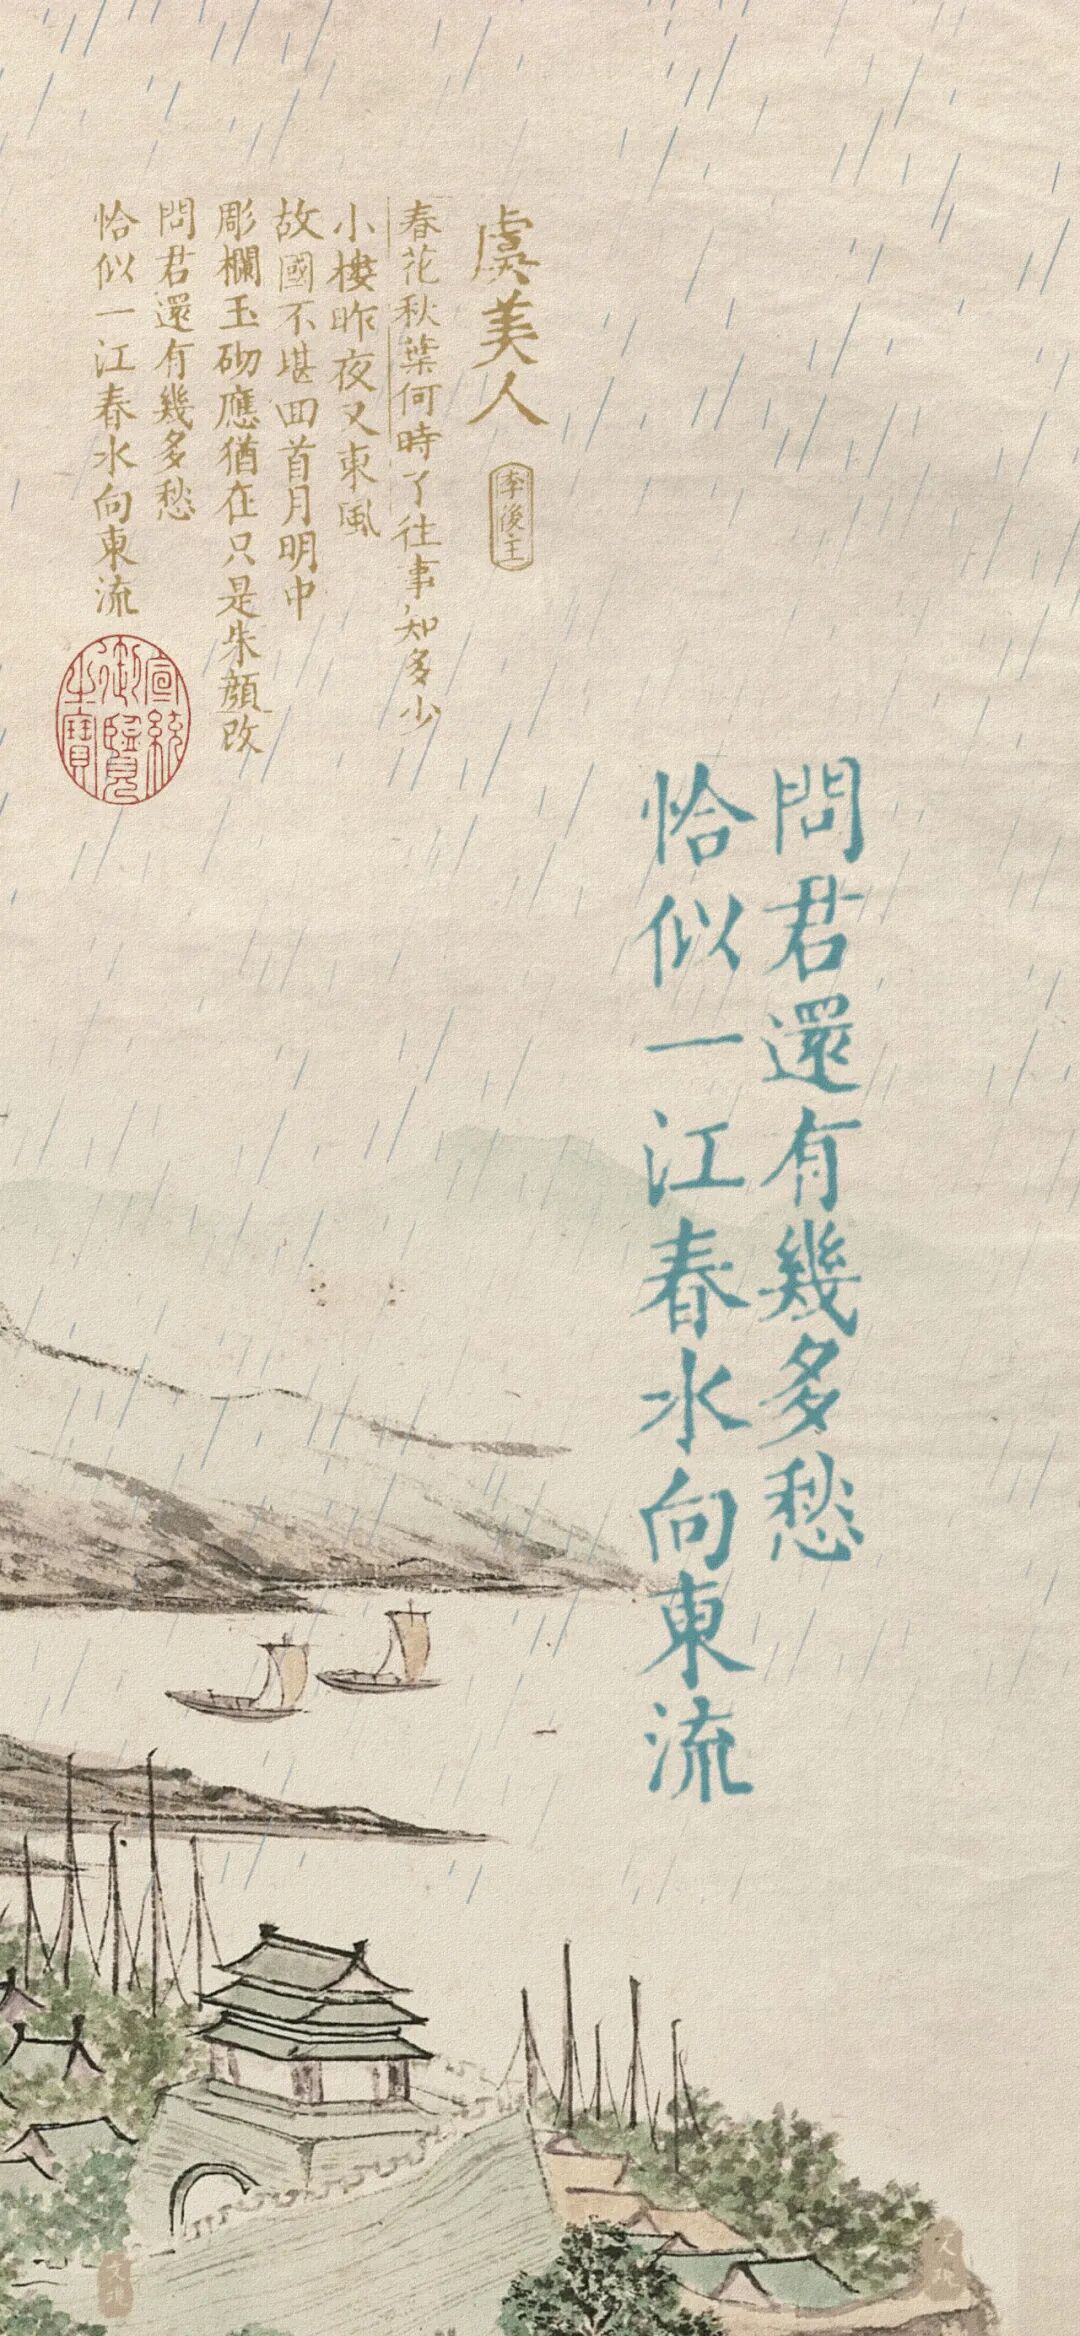 虞美人
李後主
春花秋葉何時了往事知多少
小樓昨夜又東風
故國不堪回首月明中
彫欄玉砌應猶在只是朱顏改
問君還有幾多愁
恰似一江春水向東流
宣統御覽之寶
問君還有幾多愁
恰似一江春水向東流